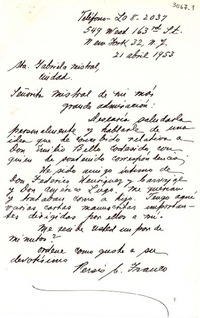 3067.1
Teléfono- LO 8-2037
549 West 163rd St.
New York 32, N.Y.
21 abril 1953
Sra. Gabriela Mistral,
Ciudad
Señorita Mistral de mi más
grande admiración:
Desearía saludarla
personalmente y hablarle de una
idea que he escrito relativa a
Don Emilio Bello Codesido, con
quien he sostenido correspondencia.
He sido amigo íntimo de
Don Federico Henríquez y Carvajal
y Don Américo Lugo. Me querían
y trataban como a hijo. Tengo aquí
varias cartas manuscritas importan-
tes dirigidas por ellos a mí.
Me recibe usted un par de
minutos?
Ordene como guste a su
devotísimo
Persio C. Franco